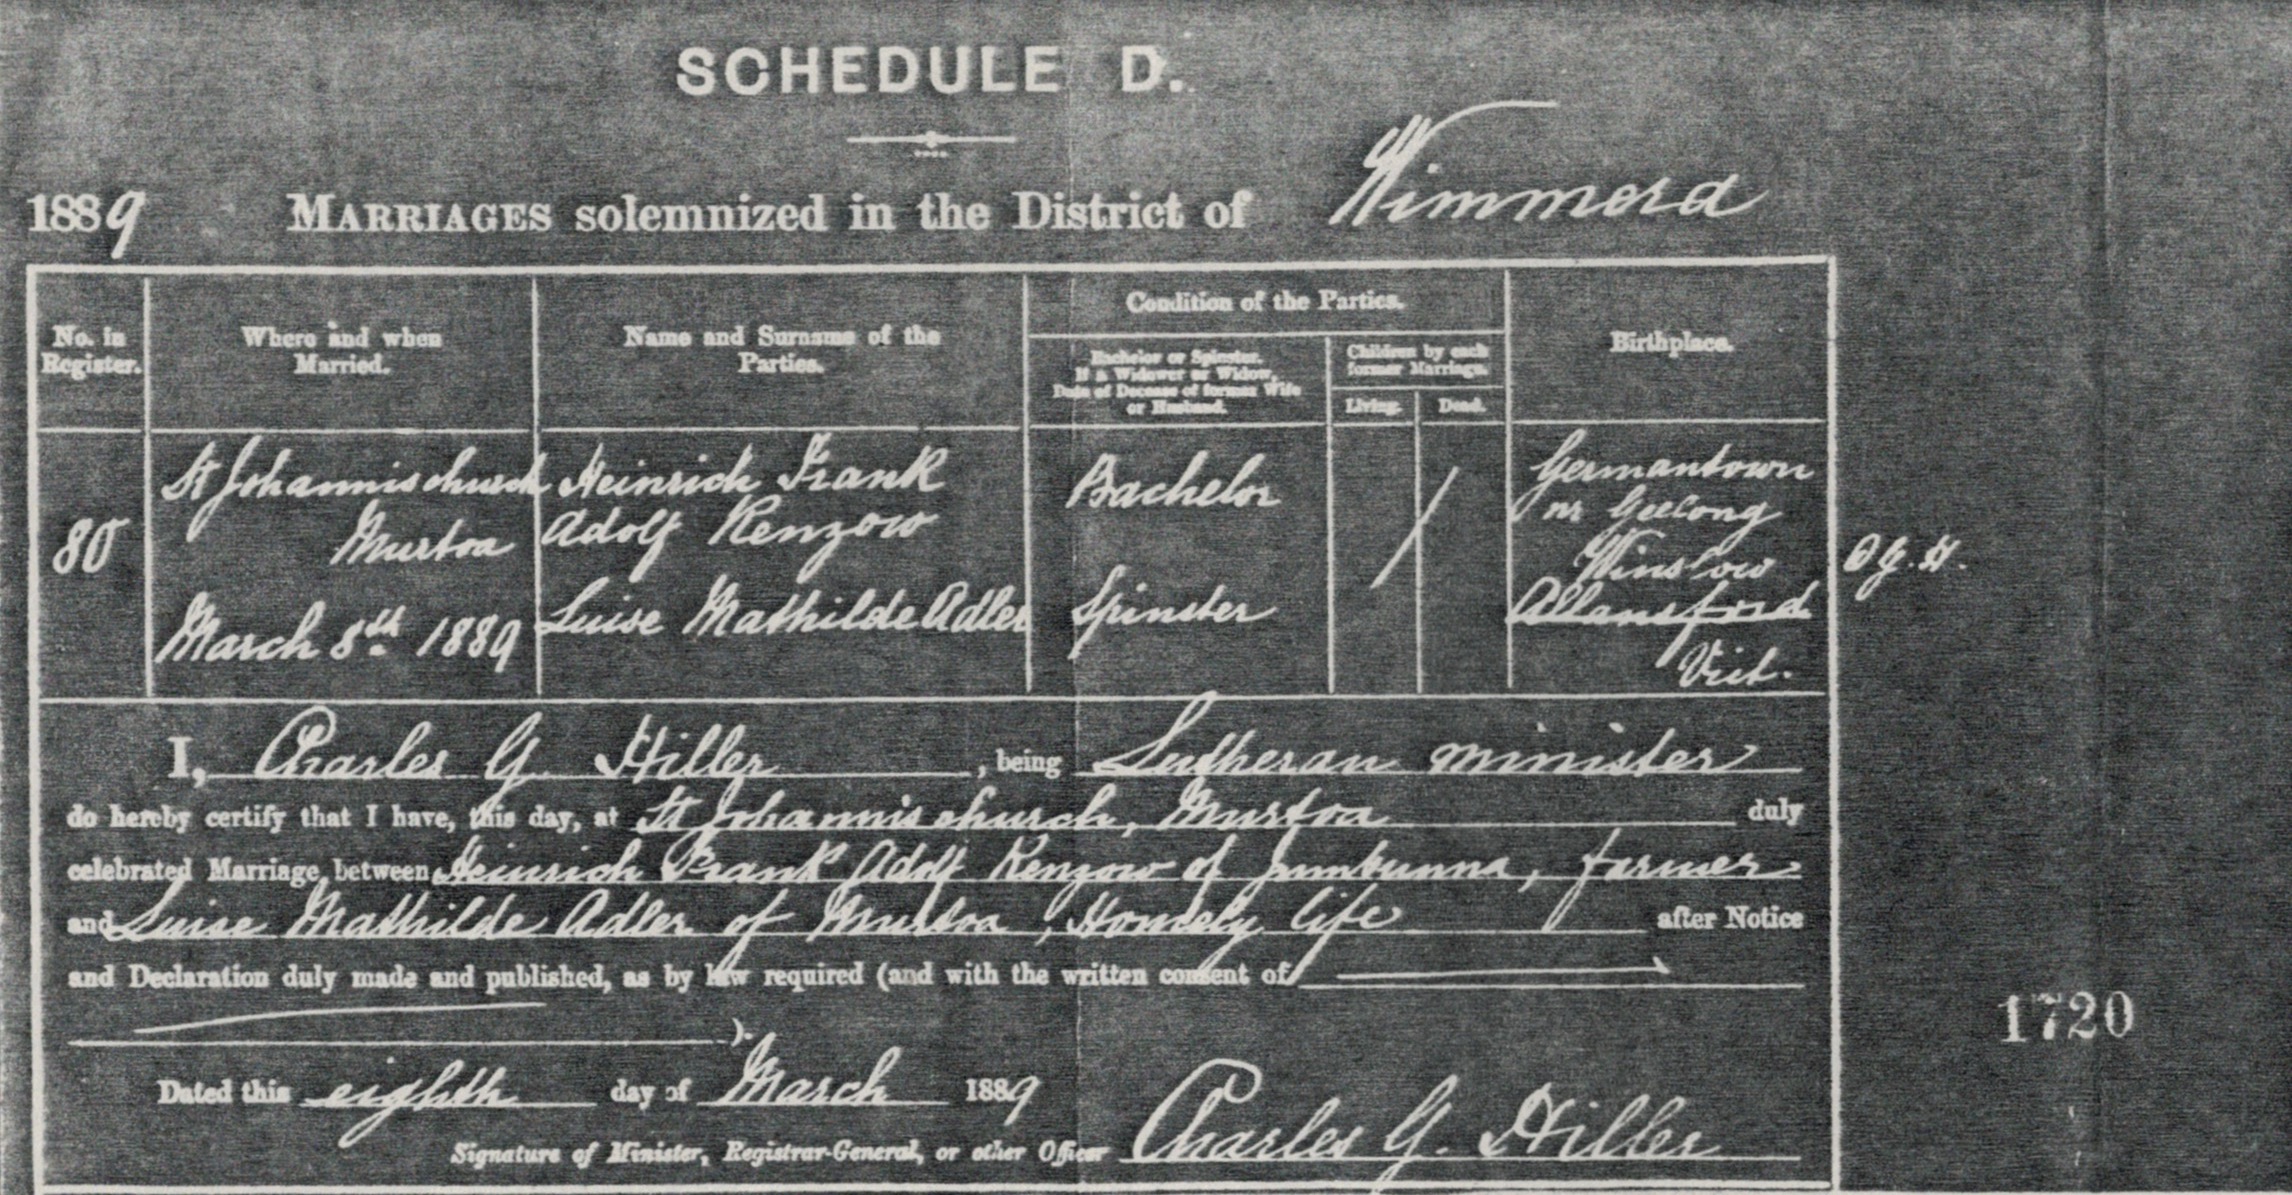 SCHEDULE D.
1889 MARRIAGES solemnized in the District of Wimmera
No. in Register.
Where and when Married.
Name and Surname of the Parties.
Condition of the Parties.
Bachelor or Spinster.
If a Widower or Widow,
Date of Decease of former Wife
or Husband.
Children by each
former Marriage.
Living.
Dead.
Birthplace.
80
St Johannischurch
Murtoa
March 8th 1889
Heinrich Frank
Adolf Renzow
Luise Mathilde Adler
Bachelor
Spinster
Germantown
nr Geelong
Winslow
Allansford
Vict.
I, Charles G. Hiller, being Lutheran minister
do hereby certify that I have, this day, at St Johannischurch, Murtoa duly
celebrated Marriage between Heinrich Frank Adolf Renzow of Jumbunna, farmer
and Luise Mathilde Adler of Murtoa, Homely life after Notice
and Declaration duly made and published, as by law required (and with the written consent of
).
Dated this eighth day of March 1889
Signature of Minister, Registrar-General, or other Officer Charles G. Hiller
1720